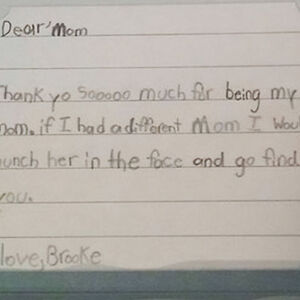 Dear Mom
Thank yo sooooo much for being my
mom. if I had a different Mom I woul
punch her in the face and go find
you.
love, Brooke